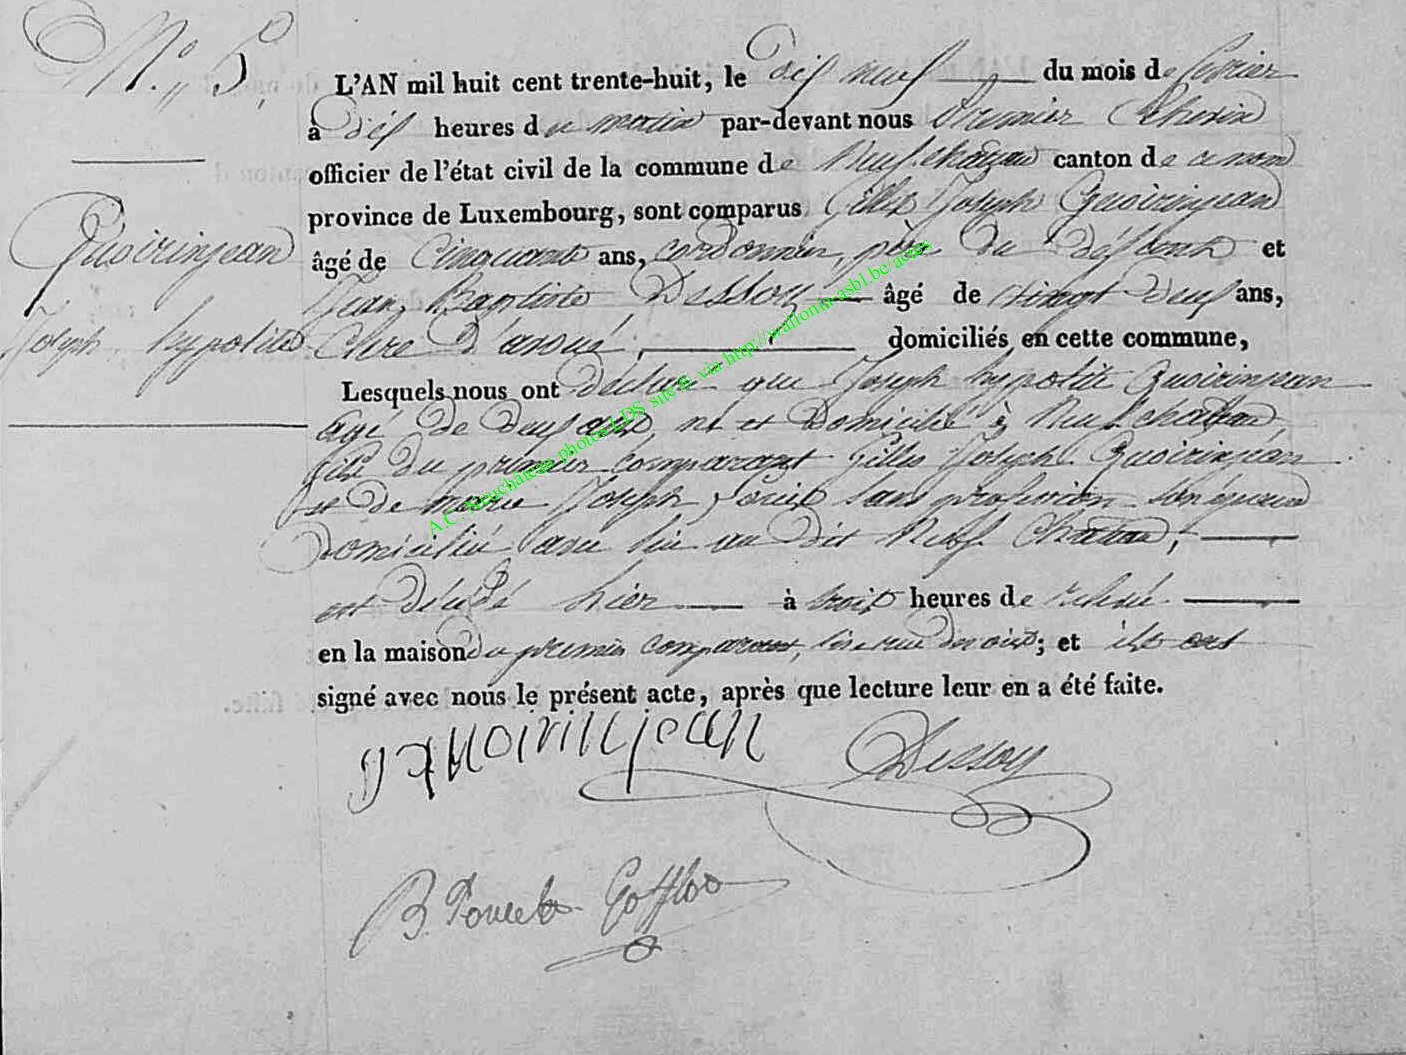 N°. 5,
L'AN mil huit cent trente-huit, le dix neuf du mois de fevrier
à dix heures du matin par-devant nous Premier Echevin
officier de l'état civil de la commune de Neufchateau canton de ce nom
province de Luxembourg, sont comparus Gilles Joseph Quoirinjean
âgé de Cinquante ans, cordonnier, père du défunt et
Jean Baptiste Dessoy âgé de vingt neuf ans,
Clerc d'avoué, domiciliés en cette commune,
Quoirinjean
Joseph hypolite
Lesquels nous ont déclaré que Joseph hypolite Quoirinjean
agé de deux ans né et Domicilié à Neufchateau,
fils du premier comparant Gilles Joseph Quoirinjean
et de marie Joseph sans profession son epouse
Domiciliée avec lui au dit Neufchateau,
est décédé hier à trois heures de relevé
en la maison du premier comparant, ; et ils ont
signé avec nous le présent acte, après que lecture leur en a été faite.
gj quoirinjean
Dessoy
B. Poncelet Gofflot
A.C. Neuchâteau photos LDS site B via http://wallonia-asbl.be/actes